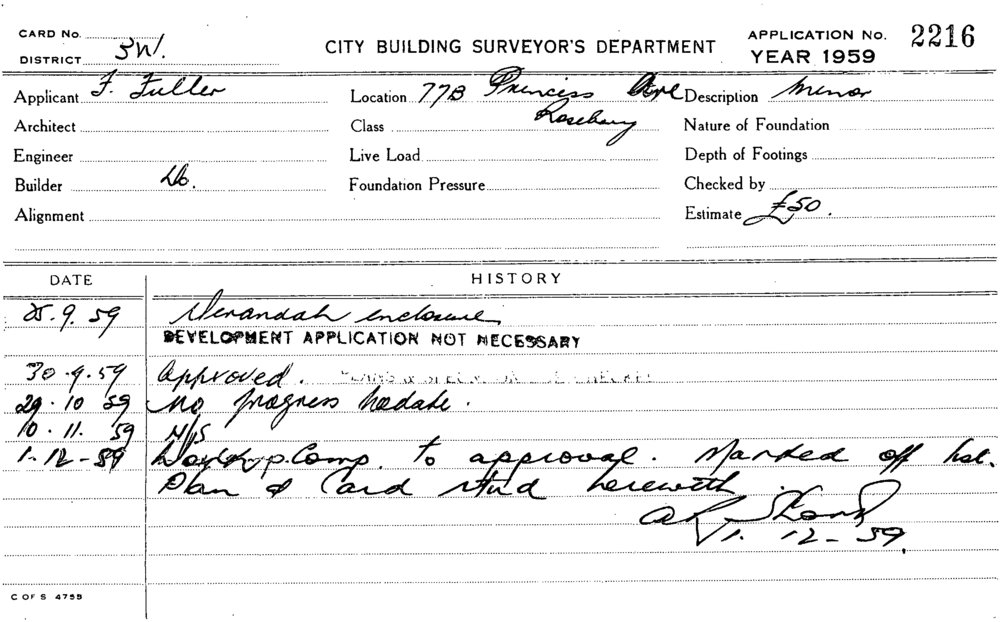 CARD No.
DISTRICT 3W.
CITY BUILDING SURVEYOR'S DEPARTMENT
APPLICATION No. 2216
YEAR 1959
Applicant F. Fuller
Location 77B Princess Ave
Rosebery
Description Minor
Architect
Class
Nature of Foundation
Engineer
Live Load
Depth of Footings
Builder Do.
Foundation Pressure
Checked by
Alignment
Estimate £50.
DATE HISTORY
25.9.59 Verandah enclosure
DEVELOPMENT APPLICATION NOT NECESSARY
30.9.59 Approved.
29.10 59 No progress to date.
10.11. 59 N/S
1-12-59 Comp. to approval. Marked off
Plan & Card herewith
1. 12-59.
C OF S 4755